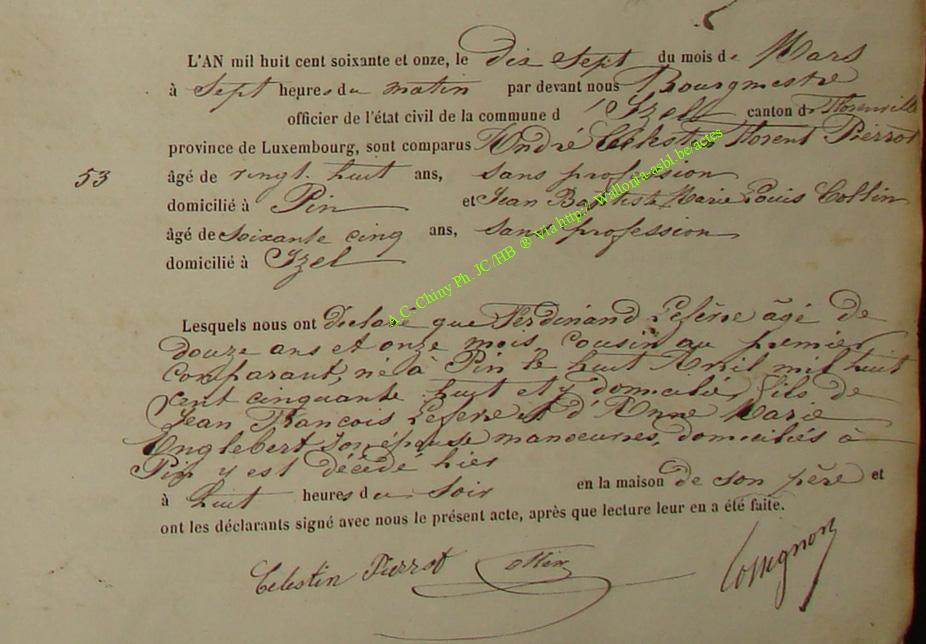 L'AN mil huit cent soixante et onze, le dix sept du mois de Mars
à sept heures du matin par devant nous Bourgmestre
officier de l'état civil de la commune d'Izel canton de Florenville
province de Luxembourg, sont comparus André Célestin Florent Pierrot
53
âgé de vingt huit ans, sans profession
domicilié à Pin et Jean Baptiste Marie Louis Collin
âgé de soixante cinq ans, sans profession
domicilié à Izel
A.C- Chiny Ph. JC/HB ® Via http://Wallonia-asbl.be/actes
Lesquels nous ont déclaré que Ferdinand Lefèvre âgé de
douze ans et onze mois, cousin au premier
comparant, né à Pin le huit Avril mil huit
cent cinquante huit et y domicilié, fils de
Jean François Lefevre et d'Anne Marie
Englebert son épouse manoeuvres, domiciliés à
Pin y est décédé hier
à huit heures du soir en la maison de son père et
ont les déclarants signé avec nous le présent acte, après que lecture leur en a été faite.
Celestin Pierrot Collin